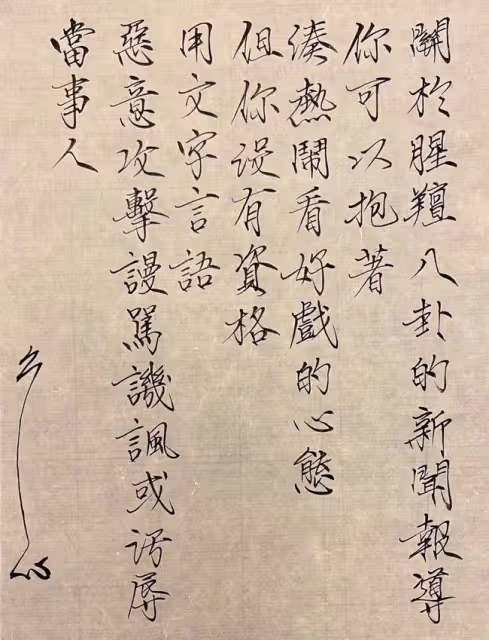 關於腥羶八卦的新聞報導
你可以抱著
湊熱鬧看好戲的心態
但你沒有資格
用文字言語
惡意攻擊謾罵譏諷或污辱
當事人